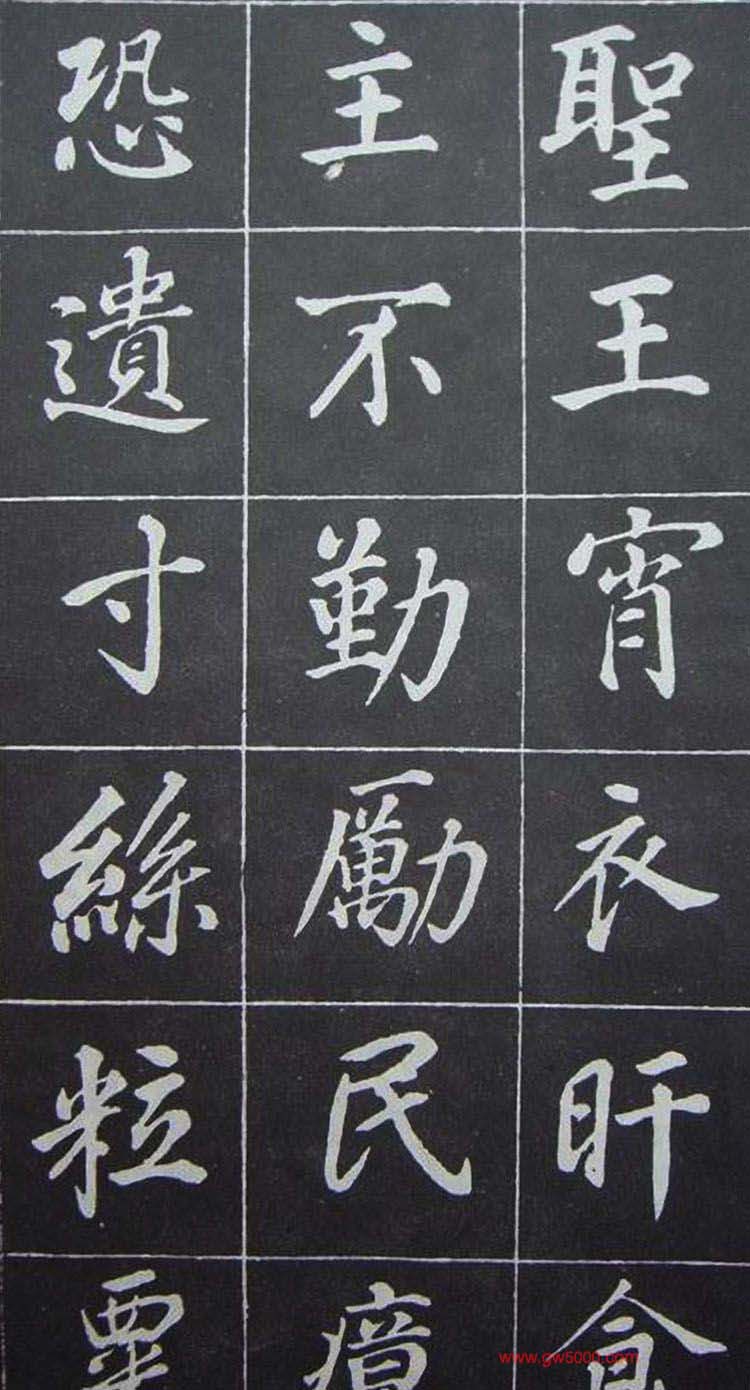 聖王宵衣旰食
主不勤勵民瘖
恐遺寸絲粒粟
www.gw5000.com